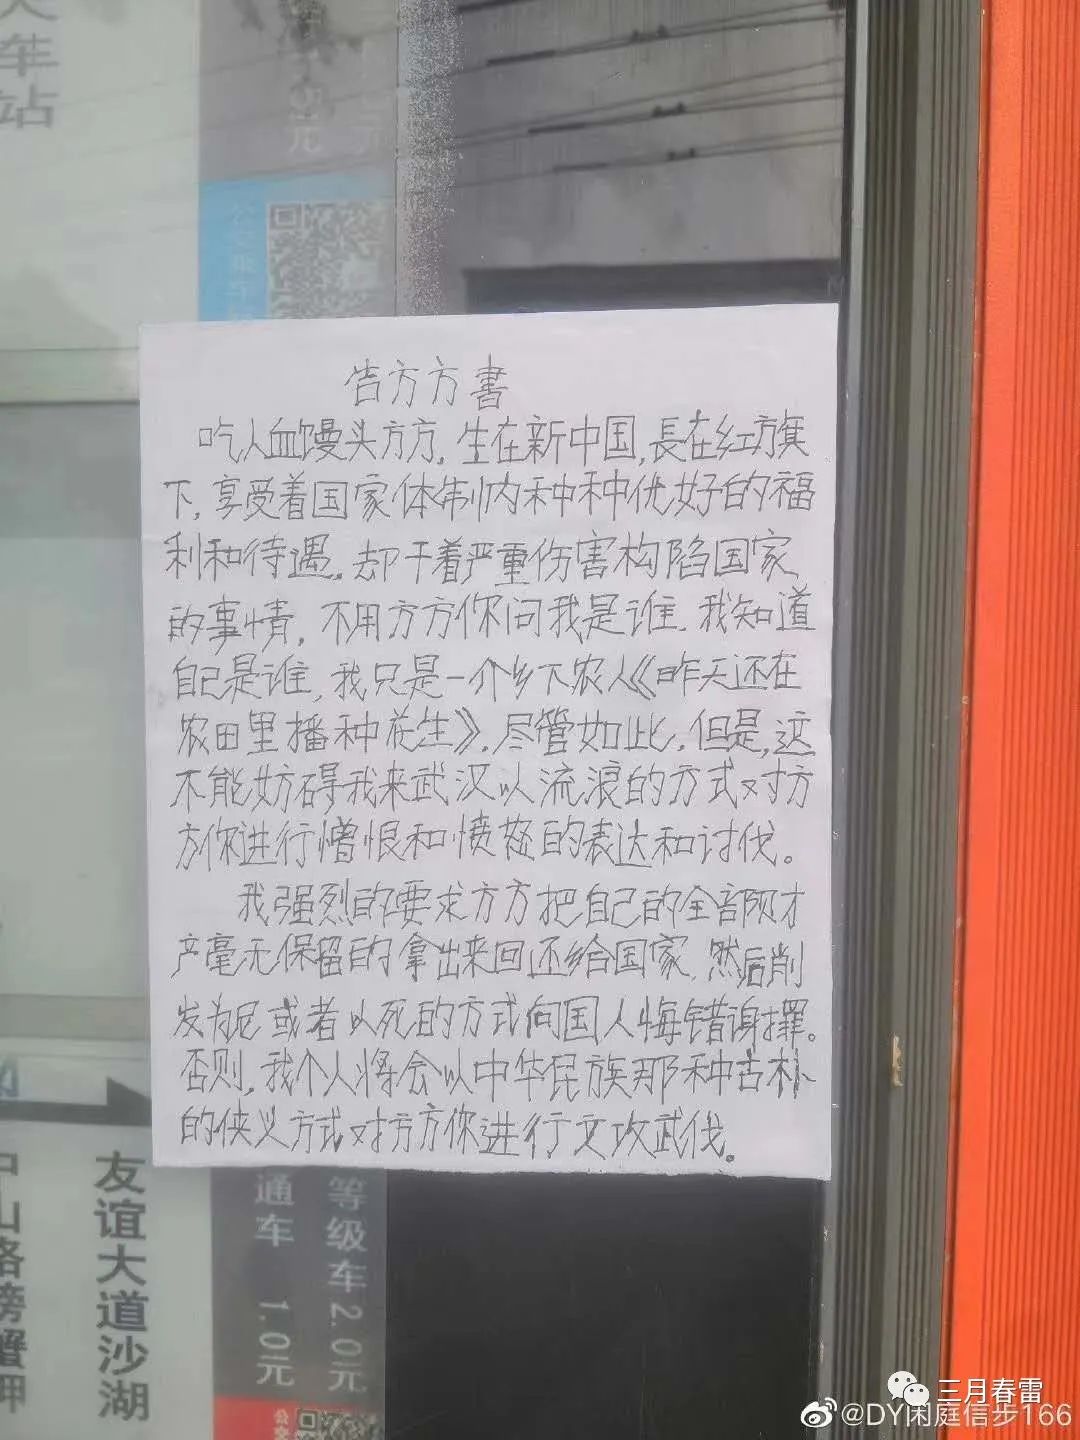 车站
元
告方方書
吃人血馒头方方，生在新中国，長在红旗
下，享受着国家体制内种种优好的福
利和待遇，却干着严重伤害构陷国家
的事情，不用方方你问我是谁，我知道
自己是谁，我只是一个乡下农人《昨天还在
农田里播种花生》，尽管如此，但是，这
不能妨碍我来武汉以流浪的方式对方
方你进行憎恨和愤怒的表达和讨伐。
我强烈的要求方方把自己的全部财才
产毫无保留的拿出来回还给国家，然后削
发为尼或者以死的方式向国人悔错谢罪。
否则，我个人将会以中华民族那种古朴
的侠义方式对方方你进行文攻武伐。
友谊大道沙湖
中山路螃蟹岬
通车 1.0元
等级车 2.0元
公交
三月春雷
@DY闲庭信步166